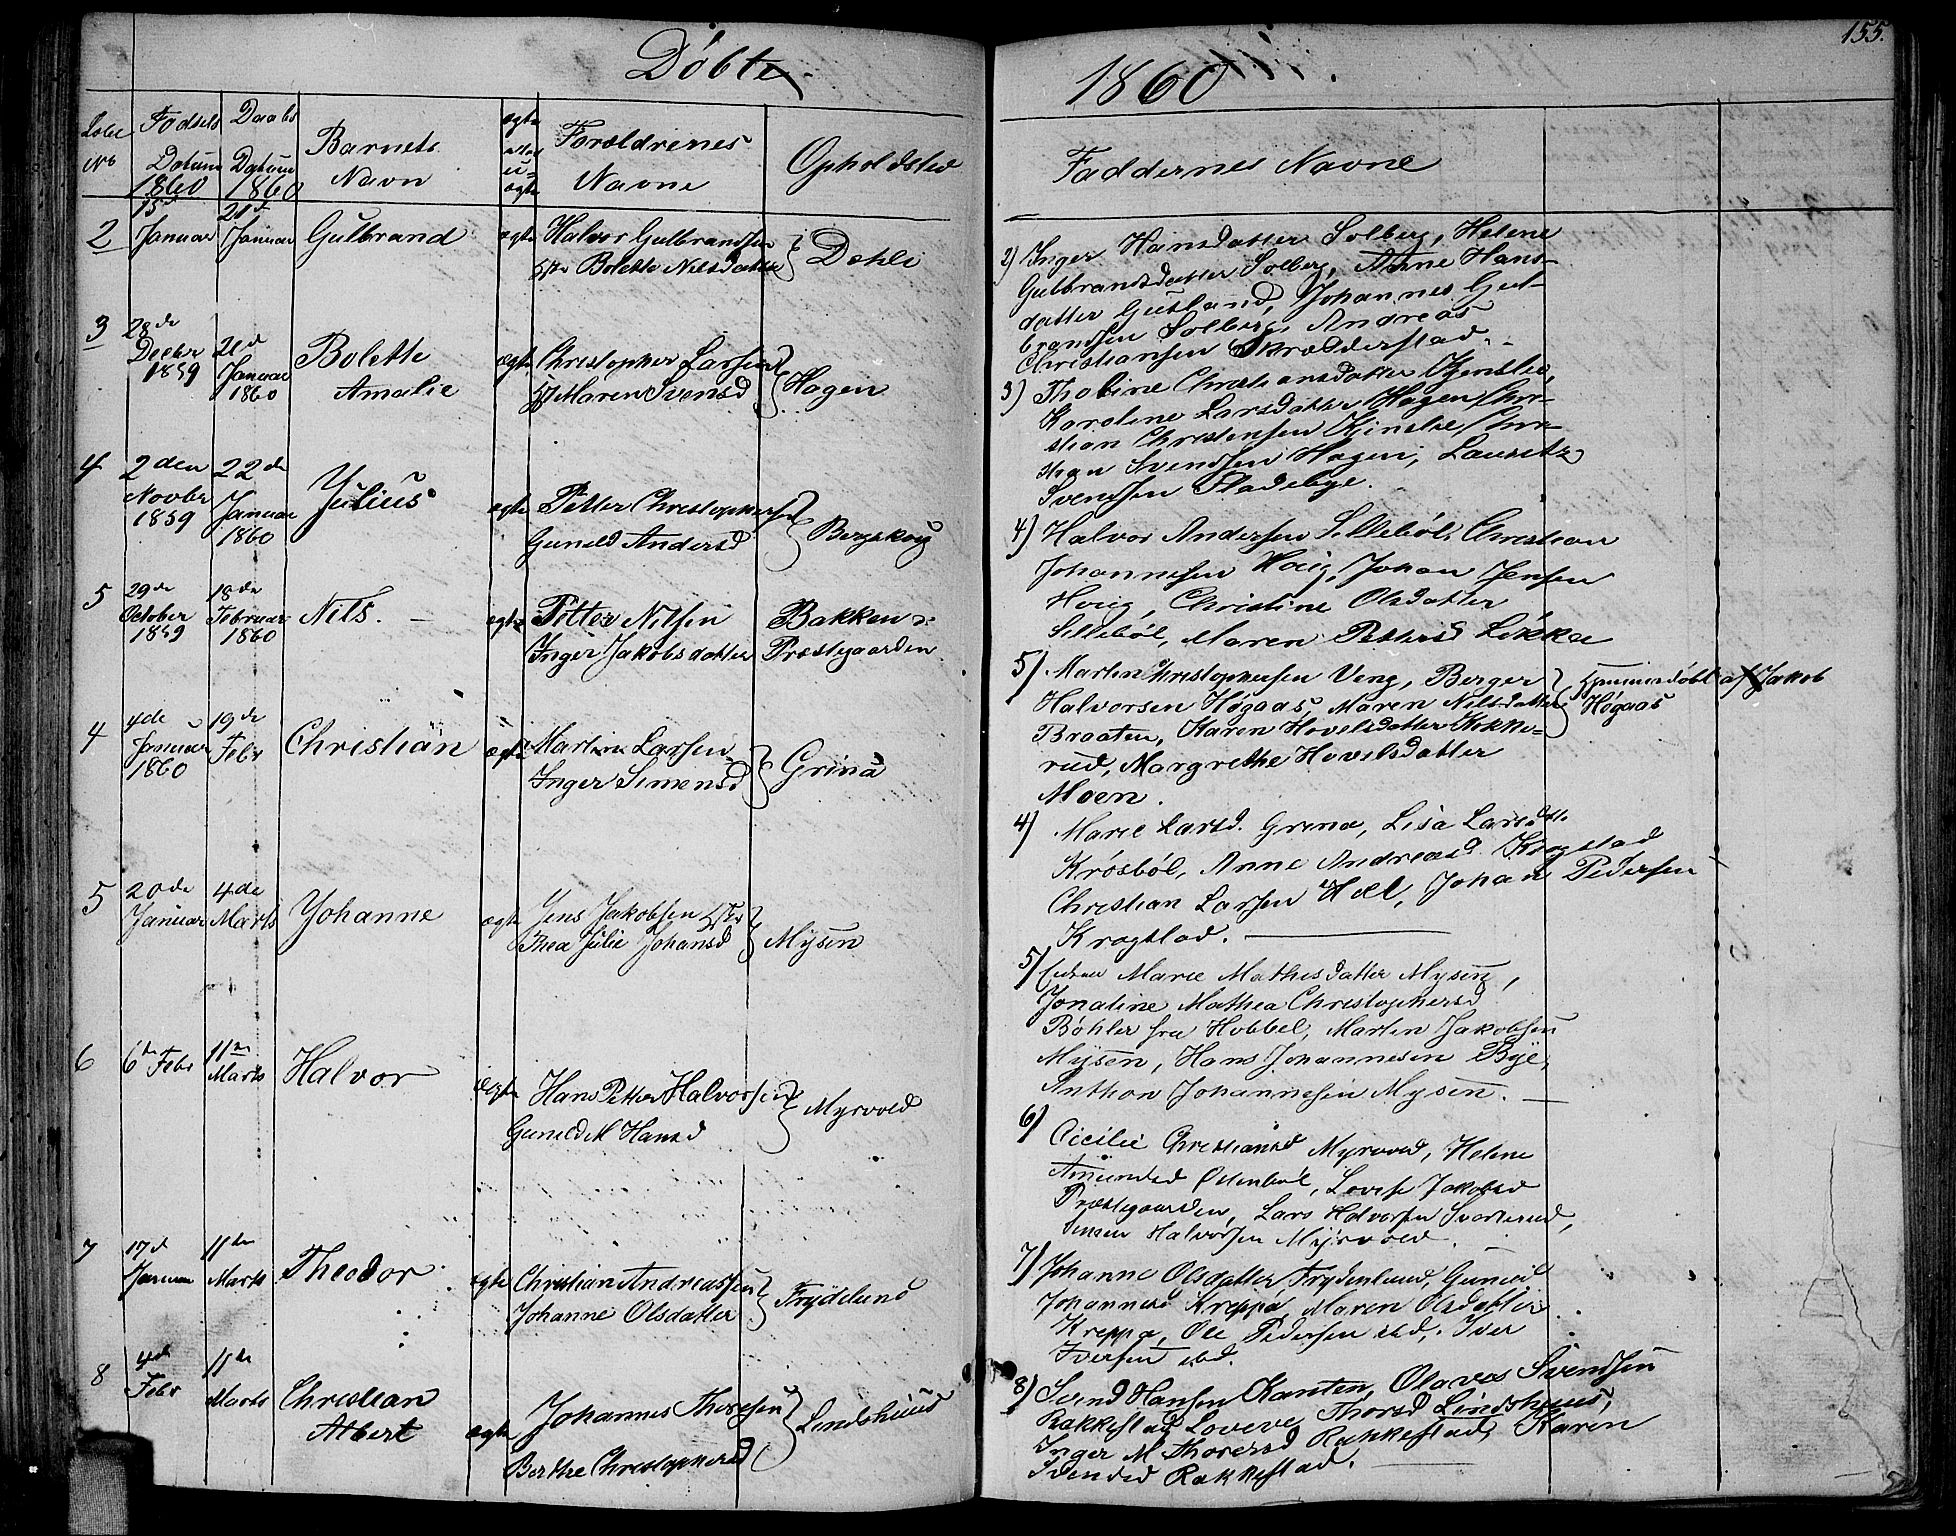 155.
Döbte
1860
Löbe No
Födsels Datum 1860
Daabs Datum 1860
Barnets Navn
ægte eller u-ægte
Forældrenes Navne
Opholdsted
Faddernes Navne
2
15d Januar
21d Januar
Gulbrand
ægte
Halvor Gulbrandsen
Bolette Nilsdatter
Dæhli
3
28de Decbr 1859
21d Januar 1860
Bolette Amalie
ægte
Christopher Larsen
Maren Svensd
Hagen
4
2den Novbr 1859
22de Januar 1860
Julius
ægte
Petter Christophersen
Gunild Andersd
Bergskoug
5
29de October 1859
18de Februar 1860
Nils.
ægte
Petter Nilsen
Inger Jakobsdatter
Bakken
Præstegaarden
4
4de Januar 1860
19de Febr
Christian
ægte
Martin Larsen
Inger Simensd
Grina
5
20de Januar
4de Marts
Johanne
ægte
Jens Jakobsen
Thea Julie Johansd
Mysen
6
6te Febr
11te Marts
Halvor
ægte
Hans Petter Halvorsen
Gunild M Hansd
Myrvold
7
17d Januar
11te Marts
Theodor
ægte
Christian Andreassen
Johanne Olsdatter
Frydelund
8
4de Febr
11te Marts
Christian Albert
ægte
Johannes Thoresen
Berthe Christophersd
Lindshuus
2) Inger Hansdatter Solberg, Helene
Gulbrandsdatter Solberg, Anne Hans-
datter Gutland, Johannes Gul-
brandsen Solberg, Andreas
Christiansen Skrædderstad.
3) Thobine Christiansdatter
Karoline Larsdatter Hagen, Chri-
stian Christensen Chri-
stian Svendsen Hagen, Lauritz
Svendsen Sladebye.
4) Halvor Andersen Sillebøl, Christian
Johannesen Houg, Johan Jensen
Houg, Christine Olsdatter
Sillebøl, Maren Pettersd Løkka
5) Martin Christophersen Veng, Berger
Halvorsen Høgaas, Maren Nilsdatter
Braaten, Karen Hovelsdatter Kikke-
rud, Margrethe Hovelsdatter
Moen.
Hjemmedøbt af Jakob
Høgaas
4) Marie Larsd. Grina, Lisa Larsdtr
Krøsbøl, Anne Andreasd Krogstad
Christian Larsen Hæl, Johan Pedersen
Krogstad.
5) Marie Mathisdatter Mysen,
Jonatine Mathea Christophersd
Bøhler fra Hobbel, Martin Jakobsen
Mysen, Hans Johannesen Bye,
Anthon Johannesen Mysen.
6) Cicilie Christiansd Myrvold, Helene
Amundsd Lovise Jakobsd
Præstegaarden, Lars Halvorsen Svarterud,
Simen Halvorsen Myrvold.
7) Johanne Olsdatter Frydenlund, Gunild
Johannesd Kreppa, Maren Olsdatter
Kreppa, Ole Pedersen ibd, Iver
Iversen ibd.
8) Svend Hansen Kanten, Olaves Svendsen
Rakkestad, Lovise Thorsd Lindshuus,
Inger M Thorersd Rakkestad, Karen
Svendsd Rakkestad.